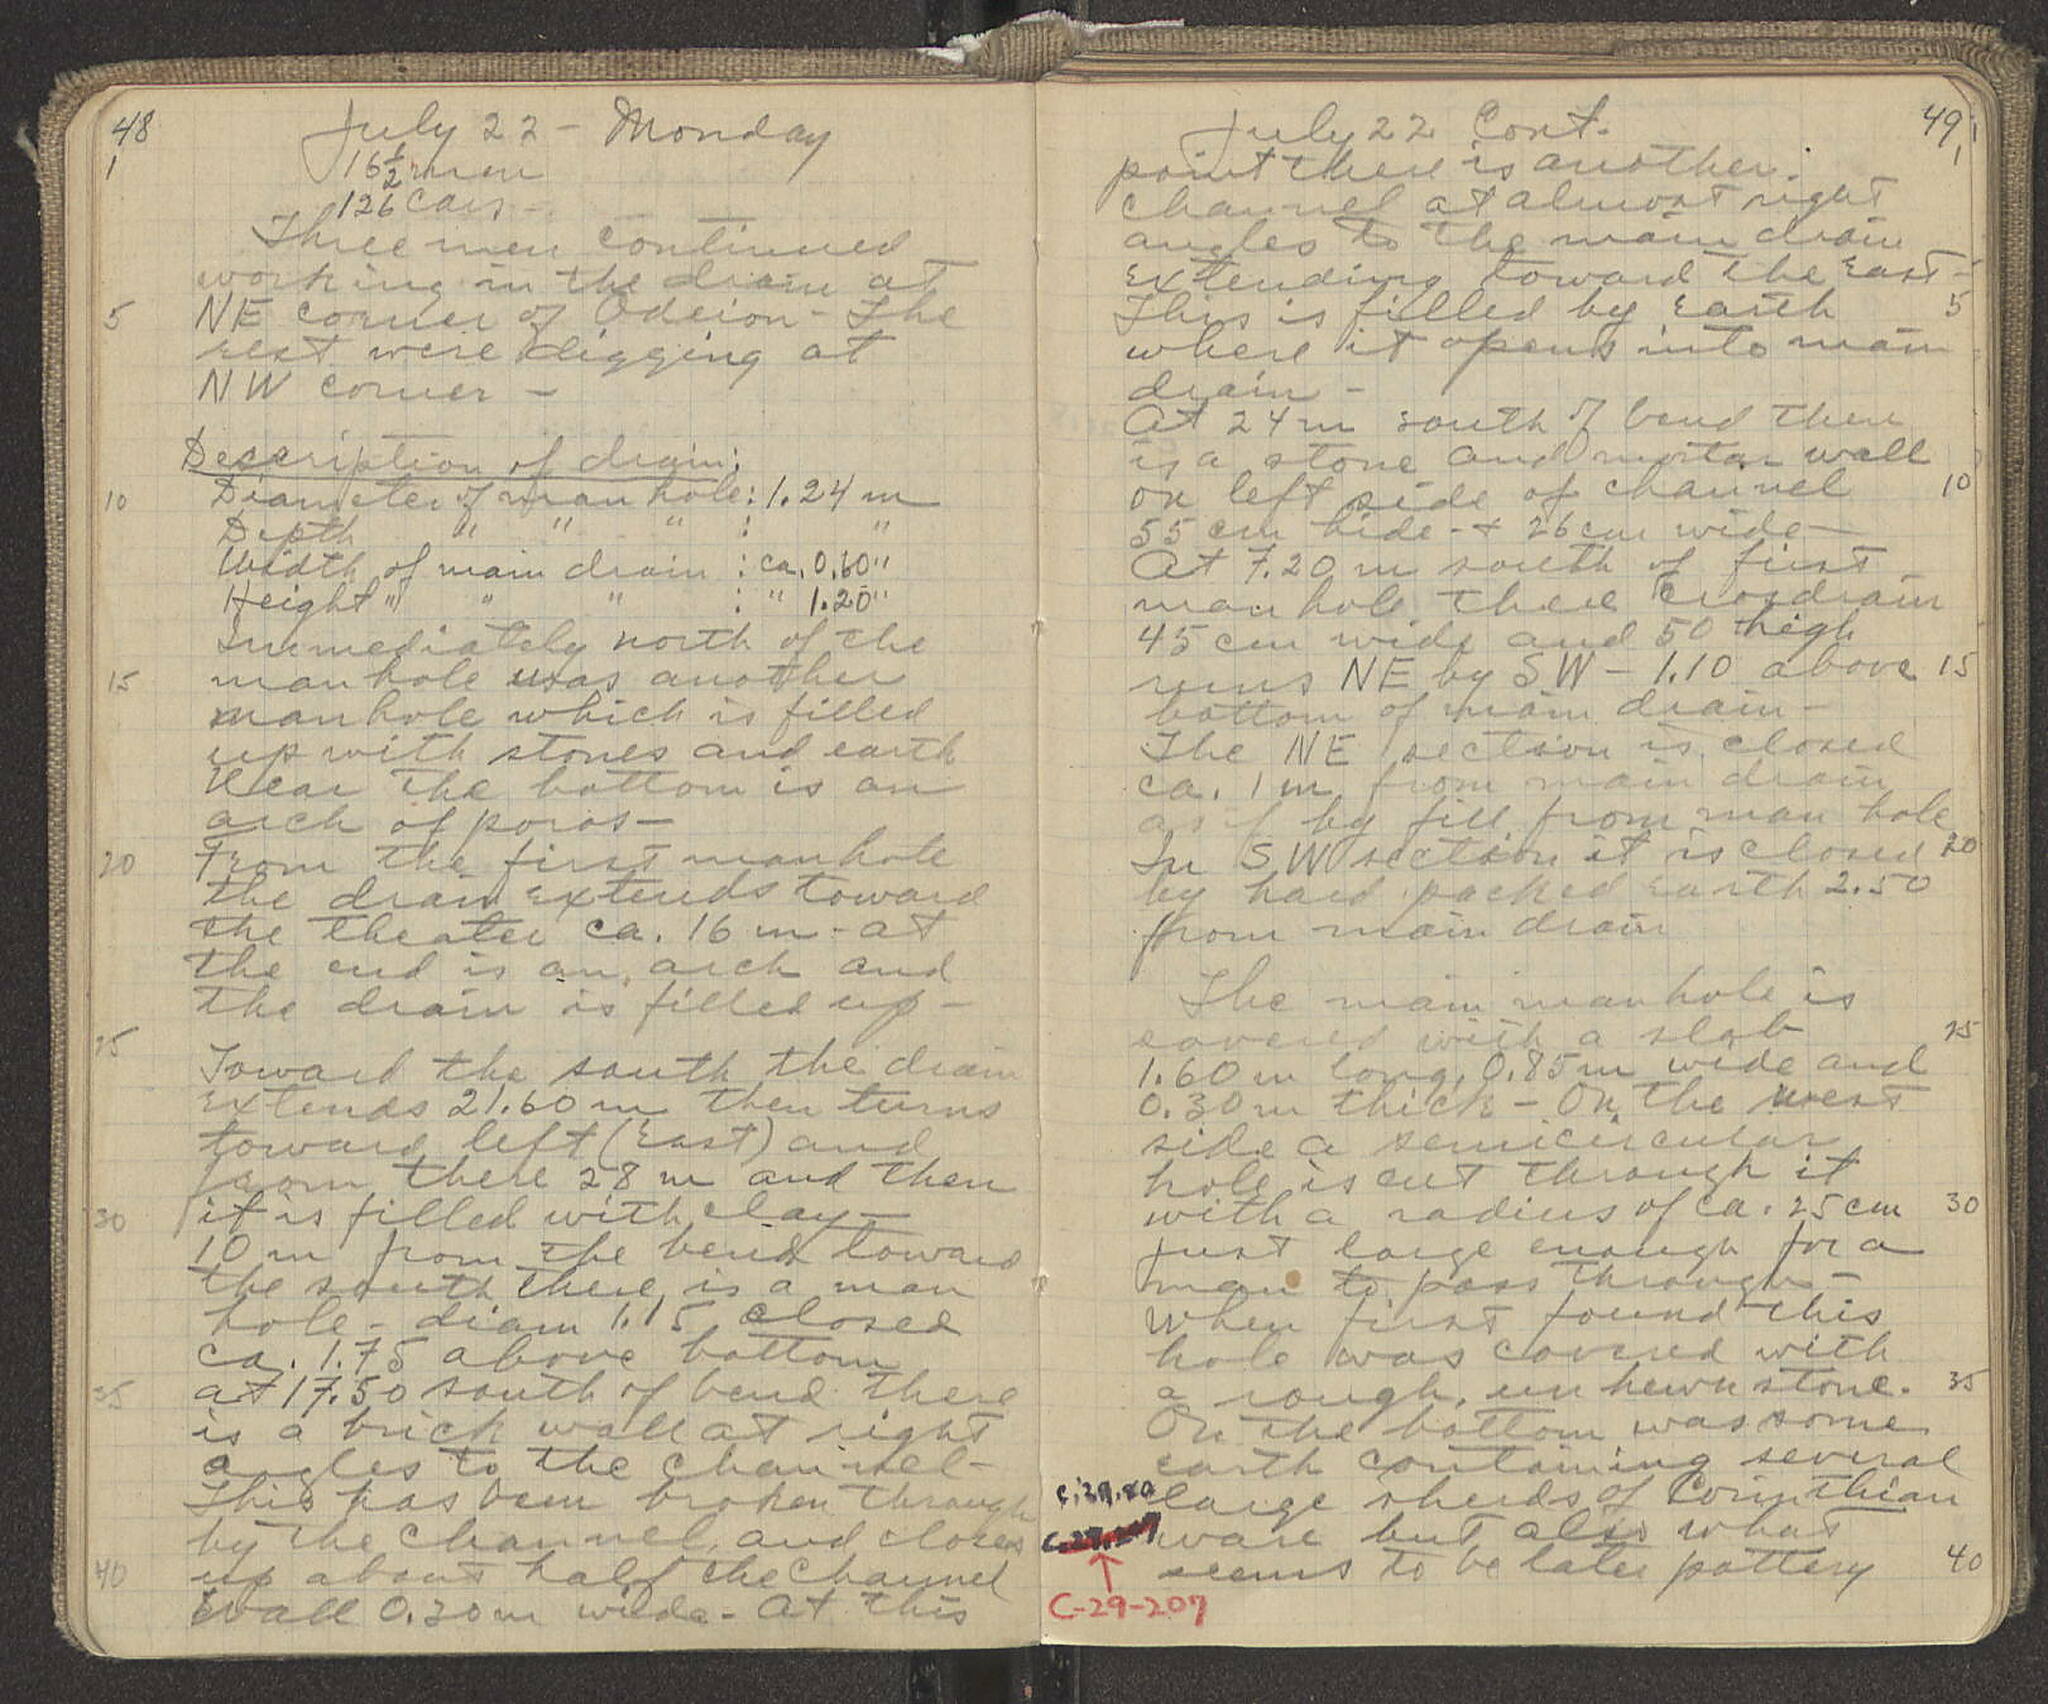 48
July 22 - Monday
1
16½ men
126 cars -
Three men continued
working in the drain at
5 NE corner of Odeion - The
rest were digging at
NW corner -
Description of drain:
10 Diameter of man hole: 1.24 m
Depth " " " : "
Width of main drain : ca. 0.60 "
Height " " " : " 1.20 "
Immediately north of the
15 man hole was another
manhole which is filled
up with stones and earth
Near the bottom is an
arch of poros -
20 From the first manhole
the drain extends toward
the theater ca. 16 m - at
the end is an arch and
the drain is filled up -
25
Toward the south the drain
extends 21.60 m then turns
toward left (East) and
from there 28 m and then
30 it is filled with clay -
10 m from the bend toward
the south there is a man
hole - diam 1.15 closed
ca. 1.75 above bottom
35 at 17.50 south of bend there
is a brick wall at right
angles to the channel -
This has been broken through
by the channel, and closes
40 up about half the channel
Wall 0.30 m wide - At this
49
July 22 Cont.
1
point there is another
channel at almost right
angles to the main drain
extending toward the East -
This is filled by earth 5
where it opens into main
drain -
At 24 m south of bend there
is a stone and mortar wall
on left side of channel 10
55 cm hide - + 26 cm wide -
At 7.20 m south of first
man hole there crosdrain
45 cm wide and 50 high
runs NE by SW - 1.10 above 15
bottom of main drain -
The NE section is closed
ca. 1 m from main drain
as if by fill from man hole
In SW section it is closed 20
by hard packed earth 2.50
from main drain
The main manhole is
covered with a slab 25
1.60 m long, 0.85 m wide and
0.30 m thick - On the west
side a semicircular
hole is cut through it
with a radius of ca. 25 cm 30
just large enough for a
man to pass through -
When first found this
hole was covered with
a rough, unhewn stone. 35
On the bottom was some
earth containing several
large sherds of Corinthian
ware but also what
seems to be later pottery 40
C-29-207